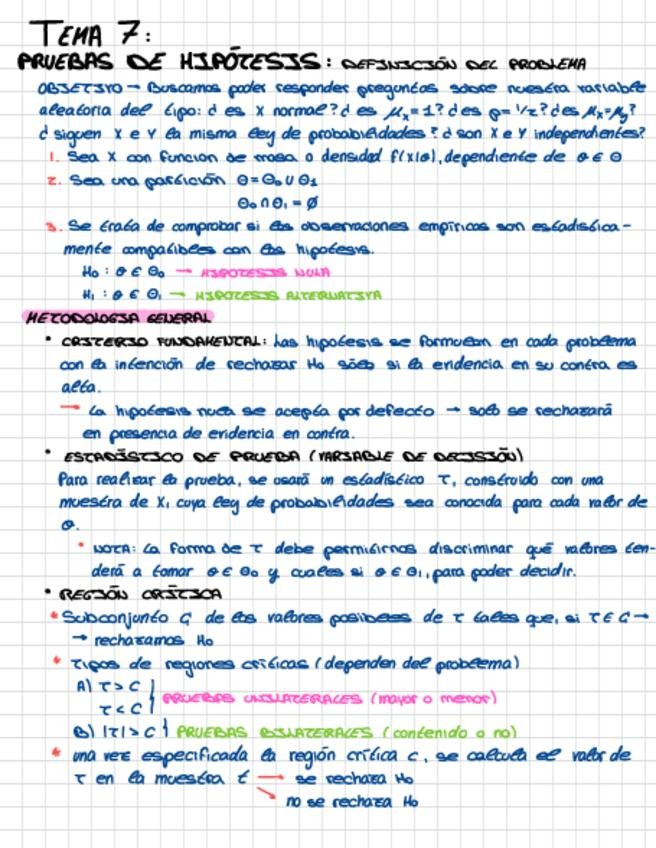 TEMA 7:
PRUEBAS DE HIPÓTESIS: DEFINICIÓN DEL PROBLEMA
OBJETIVO → Buscamos poder responder preguntas sobre nuestra variable
aleatoria del tipo: ¿ es X normal? ¿ es μx=1? ¿es p= 1/2? ¿es μx=μy?
¿ siguen X e Y la misma ley de probabilidades? ¿ son X e Y independientes?
1. Sea X con función de masa o densidad f(x|θ), dependiente de θ ∈ Θ
2. Sea una partición Θ = Θ0 ∪ Θ1
Θ0 ∩ Θ1 = ∅
3. Se trata de comprobar si las observaciones empíricas son estadística-
mente compatibles con las hipótesis.
H0 : θ ∈ Θ0 → HIPÓTESIS NULA
H1 : θ ∈ Θ1 → HIPÓTESIS ALTERNATIVA
METODOLOGIA GENERAL
• CRITERIO FUNDAMENTAL: Las hipótesis se formulan en cada problema
con la intención de rechazar H0 sólo si la evidencia en su contra es
alta.
→ La hipótesis nula se acepta por defecto → solo se rechazará
en presencia de evidencia en contra.
• ESTADÍSTICO DE PRUEBA (VARIABLE DE DECISIÓN)
Para realizar la prueba, se usará un estadístico T, construido con una
muestra de X, cuya ley de probabilidades sea conocida para cada valor de
θ.
• NOTA: La forma de T debe permitirnos discriminar qué valores ten-
derá a tomar θ ∈ Θ0 y cuales si θ ∈ Θ1, para poder decidir.
• REGIÓN CRÍTICA
* Subconjunto C de los valores posibles de T tales que, si T ∈ C →
→ rechazamos H0
* Tipos de regiones críticas (dependen del problema)
A) T > C
T < C } PRUEBAS UNILATERALES (mayor o menor)
B) |T| > C } PRUEBAS BILATERALES (contenido o no)
* una vez especificada la región crítica C, se calcula el valor de
T en la muestra t → se rechaza H0
↘ no se rechaza H0